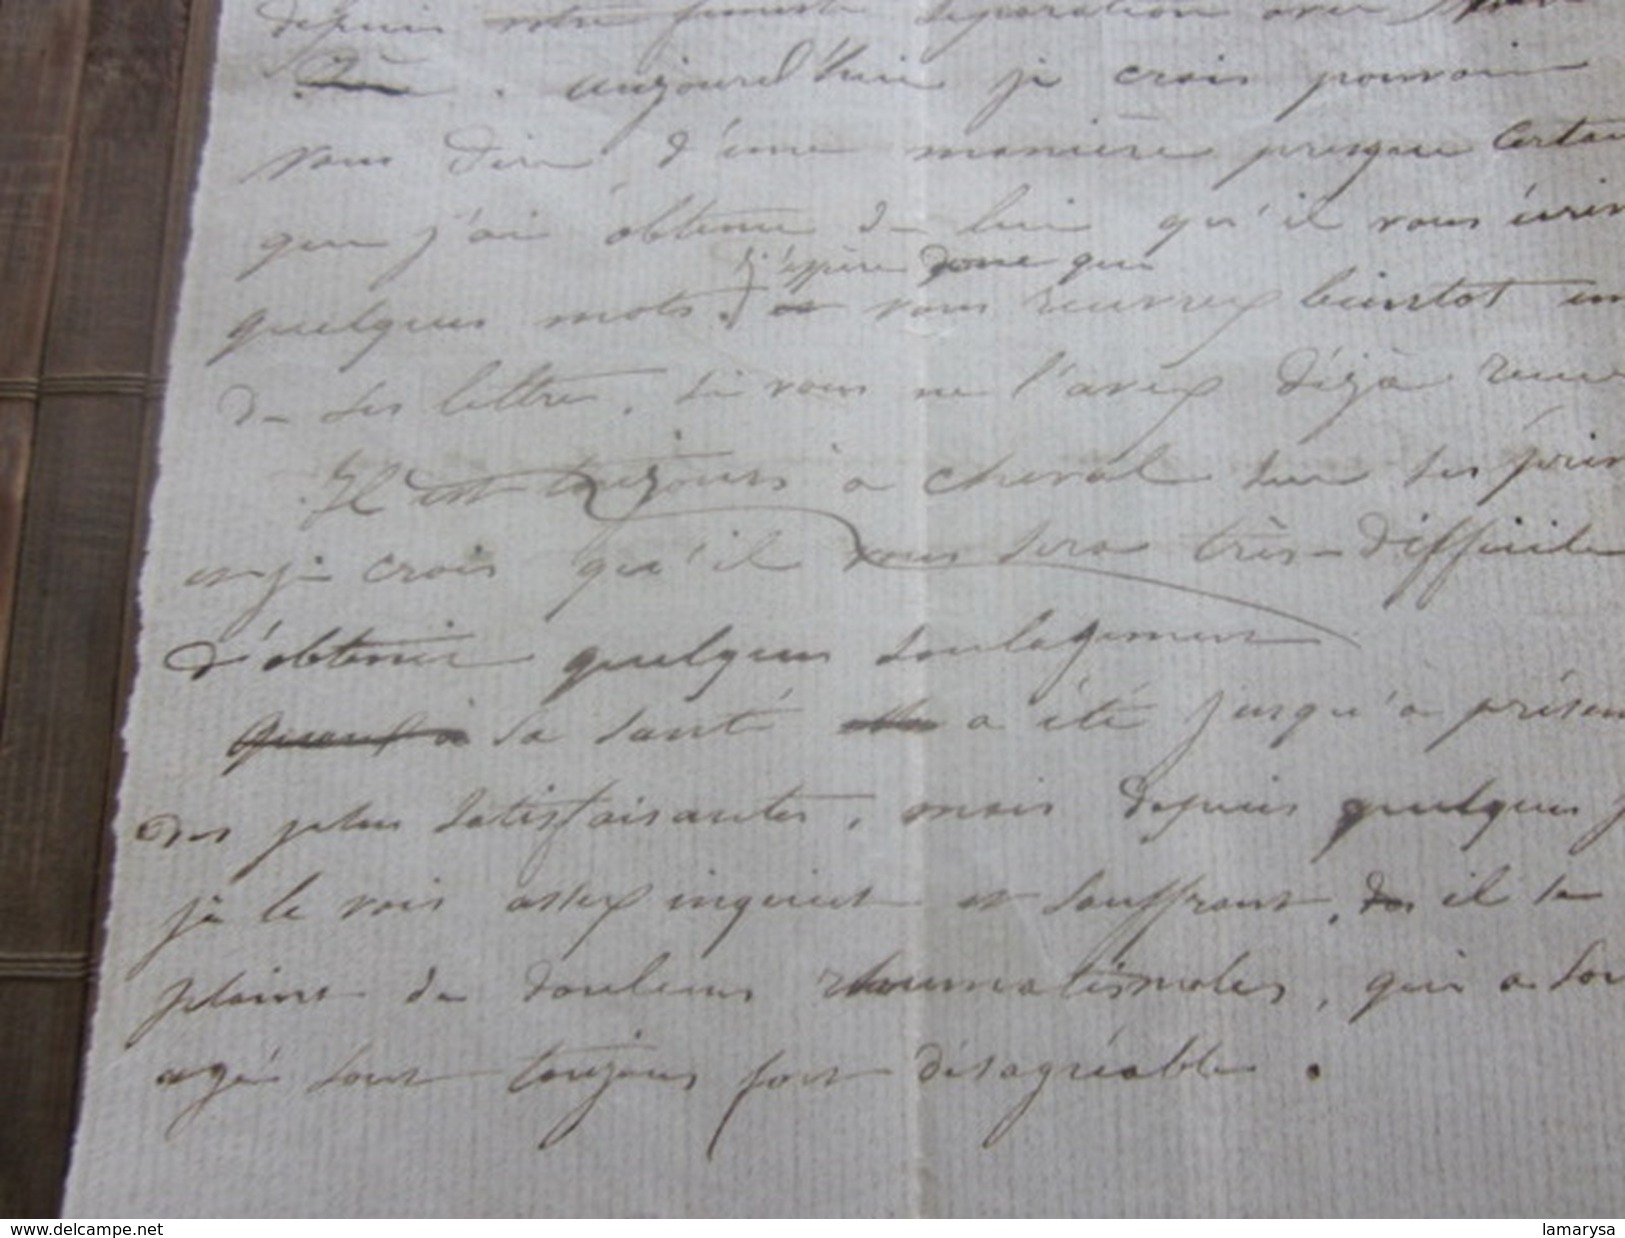 depuis votre funeste séparation avec
. aujourd'hui je crois pouvoir
vous dire d'une manière presque certai
que j'ai obtenu de lui qu'il vous écrir
j'espère donc que
quelques mots. vous recevrez bientot un
de ses lettres, si vous ne l'avez déjà recue
Il est toujours à cheval sur ses prin
et je crois qu'il vous sera très-difficile
d'obtenir quelques soulagement
quant à sa santé a été jusqu'à présen
des plus satisfaisantes, mais depuis quelques j
je le vois assez inquiet et souffrant, il se
plaint de douleurs rhumatismales, qui a son
agé sont toujours fort désagréable.
www.delcampe.net
lamarysa